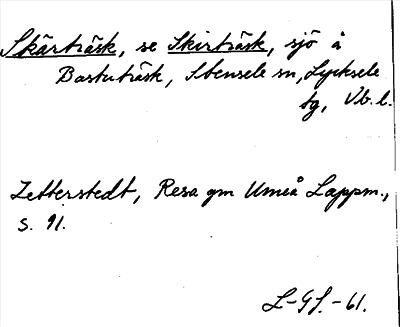 Skärträsk, se Skirträsk, sjö å
Bastuträsk, Stensele sn, Lycksele
tg, Vb. l.
Zetterstedt, Resa gm Umeå Lappm.,
s. 91.
L-Gf.-61.